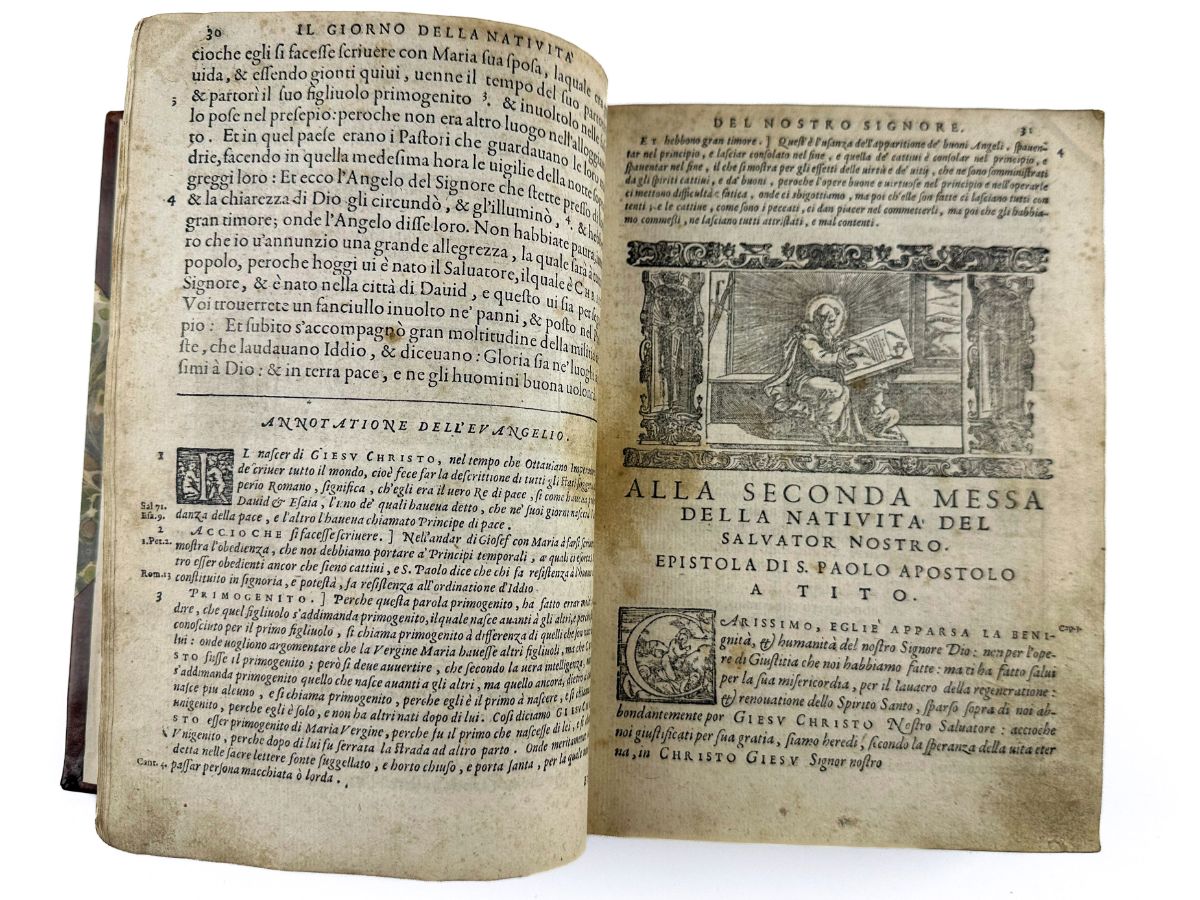 30 IL GIORNO DELLA NATIVITA'
cioche egli si facesse scriuere con Maria sua sposa, laquale era
uida, & essendo gionti quiui, uenne il tempo del suo
5 & partorì il suo figliuolo primogenito 3. & inuoltolo nelle
lo pose nel presepio: peroche non era altro luogo nell'
to. Et in quel paese erano i Pastori che guardauano le loro
drie, facendo in quella medesima hora le uigilie della notte
greggi loro: Et ecco l'Angelo del Signore che stette presso di
4 & la chiarezza di Dio gli circundò, & gl'illuminò, 4. &
gran timore; onde l'Angelo disse loro. Non habbiate paura,
ro che io u'annunzio una grande allegrezza, la quale sarà à
popolo, peroche hoggi ui è nato il Saluatore, ilquale è
Signore, & è nato nella città di Dauid, e questo ui sia per
Voi trouerrete un fanciullo inuolto ne' panni, & posto nel
pio: Et subito s'accompagnò gran moltitudine della militia
ste, che laudauano Iddio, & diceuano: Gloria sia ne' luoghi
simi à Dio: & in terra pace, e ne gli huomini buona
ANNOTATIONE DELL'EVANGELIO.
1 IL nascer di GIESV CHRISTO, nel tempo che Ottauiano
de scriuer tutto il mondo, cioè fece far la descrittione di tutti gli
perio Romano, significa, ch'egli era il uero Re di pace, si come
Sal 71. Dauid & Esaia, l'uno de' quali haueua detto, che ne' suoi giorni
Esa.9. danza della pace, e l'altro l'haueua chiamato Principe di pace.
2 ACCIOCHE si facesse scriuere.] Nell'andar di Giosef con Maria à farsi
1.Pet.2. mostra l'obedienza, che noi debbiamo portare a' Principi temporali, a' quali ci
tro esser obedienti ancor che sieno cattiui, e S. Paolo dice che chi fa resistenza
Rom.13 constituito in signoria, e potestà, fa resistenza all'ordinatione d'Iddio.
3 PRIMOGENITO.] Perche questa parola primogenito, ha fatto errar
dire, che quel figliuolo s'addimanda primogenito, ilquale nasce auanti à gli altri,
conosciuto per il primo figliuolo, si chiama primogenito à differenza di quelli che
lui: onde uogliono argomentare che la Vergine Maria hauesse altri figliuoli, ma che
STO fusse il primogenito; però si deue auuertire, che secondo la uera intelligenza,
s'addimanda primogenito quello che nasce auanti a gli altri, ma quello ancora, dietro
nasce piu alcuno, e si chiama primogenito, perche egli è il primo à nascere, e si
unigenito, perche egli è solo, e non ha altri nati dopo di lui. Così dictamo GIESV
STO esser primogenito di Maria Vergine, perche fu il primo che nascesse di lei,
Vnigenito, perche dopo di lui fu serrata la strada ad altro parto. Onde
detta nelle sacre lettere fonte suggellato, e horto chiuso, e porta santa, per la quale
Cant. 4. passar persona macchiata ò lorda.
DEL NOSTRO SIGNORE. 31
ET hebbono gran timore.] Quest'è l'usanza dell'apparitione de' buoni Angeli, spauen- 4
tar nel principio, e lasciar consolato nel fine, e quella de' cattiui è consolar nel principio, e
spauentar nel fine, il che si mostra per gli effetti delle uirtù e de' uitij, che ne sono somministrati
da gli spiriti cattiui, e da' buoni, peroche l'opere buone e uirtuose nel principio e nell'operarle
ci mettono difficultà e fatica, onde ci sbigottiamo, ma poi ch'elle son fatte ci lasciano tutti con
tenti, e le cattiue, come sono i peccati, ci dan piacer nel commetterli, ma poi che gli habbia-
mo commessi, ne lasciano tutti attristati, e mal contenti.
ALLA SECONDA MESSA
DELLA NATIVITA' DEL
SALVATOR NOSTRO.
EPISTOLA DI S. PAOLO APOSTOLO
A TITO.
CARISSIMO, EGLI E' APPARSA LA BENI- Cap.3.
gnità, & humanità del nostro Signore Dio: non per l'ope
re di Giustitia che noi habbiamo fatte: ma ti ha fatto salui
per la sua misericordia, per il lauacro della regeneratione:
& renouatione dello Spirito Santo, sparso sopra di noi ab-
bondantemente por GIESV CHRISTO Nostro Saluatore: accioche
noi giustificati per sua gratia, siamo heredi, secondo la speranza della uita eter
na, in CHRISTO GIESV Signor nostro